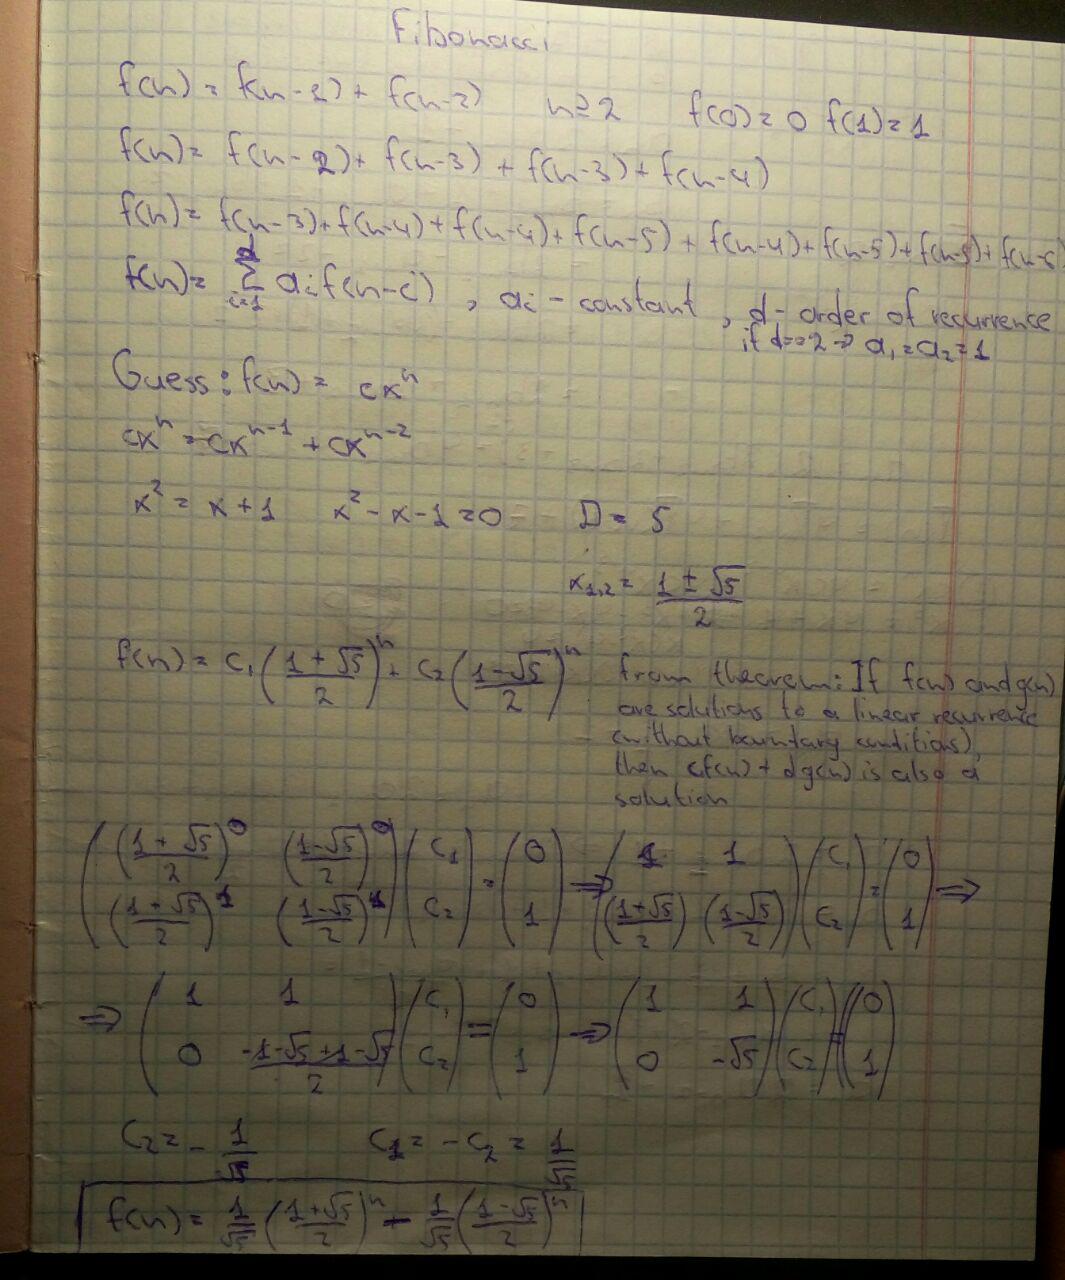 Fibonacci
f(n) = f(n-1) + f(n-2) n≥2 f(0)=0 f(1)=1
f(n) = f(n-2) + f(n-3) + f(n-3) + f(n-4)
f(n) = f(n-3) + f(n-4) + f(n-4) + f(n-5) + f(n-4) + f(n-5) + f(n-5) + f(n-6)
f(n) = ∑_{i=1}^{d} a_i f(n-i) , a_i - constant , d - order of recurrence
if d=2 → a₁=a₂=1
Guess: f(n) = cxⁿ
cxⁿ = cxⁿ⁻¹ + cxⁿ⁻²
x² = x+1 x²-x-1=0 D= 5
x₁,₂ = (1±√5)/2
f(n) = c₁((1+√5)/2)ⁿ + c₂((1-√5)/2)ⁿ
from theorem: If f(n) and g(n)
are solutions to a linear recurrence
(without boundary conditions),
then cf(n) + dg(n) is also a
solution
(((1+√5)/2)⁰ ((1-√5)/2)⁰; ((1+√5)/2)¹ ((1-√5)/2)¹)(c₁; c₂) = (0; 1) ⇒ (1 1; ((1+√5)/2) ((1-√5)/2))(c₁; c₂) = (0; 1) ⇒
⇒ (1 1; 0 (-1-√5+1-√5)/2)(c₁; c₂) = (0; 1) ⇒ (1 1; 0 -√5)(c₁; c₂) = (0; 1)
c₂ = -1/√5 c₁ = -c₂ = 1/√5
f(n) = 1/√5((1+√5)/2)ⁿ - 1/√5((1-√5)/2)ⁿ